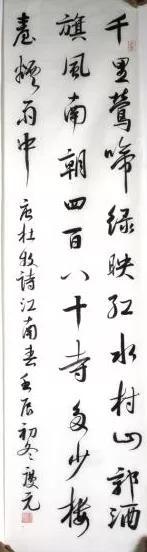 千里莺啼绿映红水村山郭酒
旗风南朝四百八十寺多少楼
台烟雨中 唐杜牧诗江南春 壬辰初冬庆元